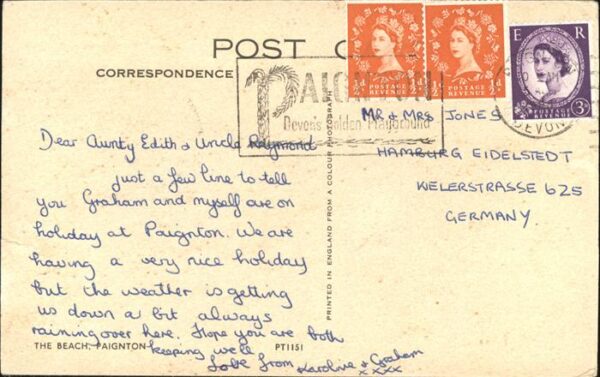 POST
CORRESPONDENCE
PAIGNTON
Devon's Golden Playground
½d POSTAGE REVENUE ½d
½d POSTAGE REVENUE ½d
E R
POSTAGE REVENUE 3D
DEVON
Dear Aunty Edith & Uncle Raymond
just a few line to tell
you Graham and myself are on
holiday at Paignton. We are
having a very nice holiday
but the weather is getting
us down a bit always
raining over here. Hope you are both
keeping well
Love from Karoline & Graham
xxxx
MR & MRS JONES
HAMBURG EIDELSTEDT
WELERSTRASSE 625
GERMANY
PRINTED IN ENGLAND FROM A COLOUR PHOTOGRAPH
THE BEACH, PAIGNTON
PT1151